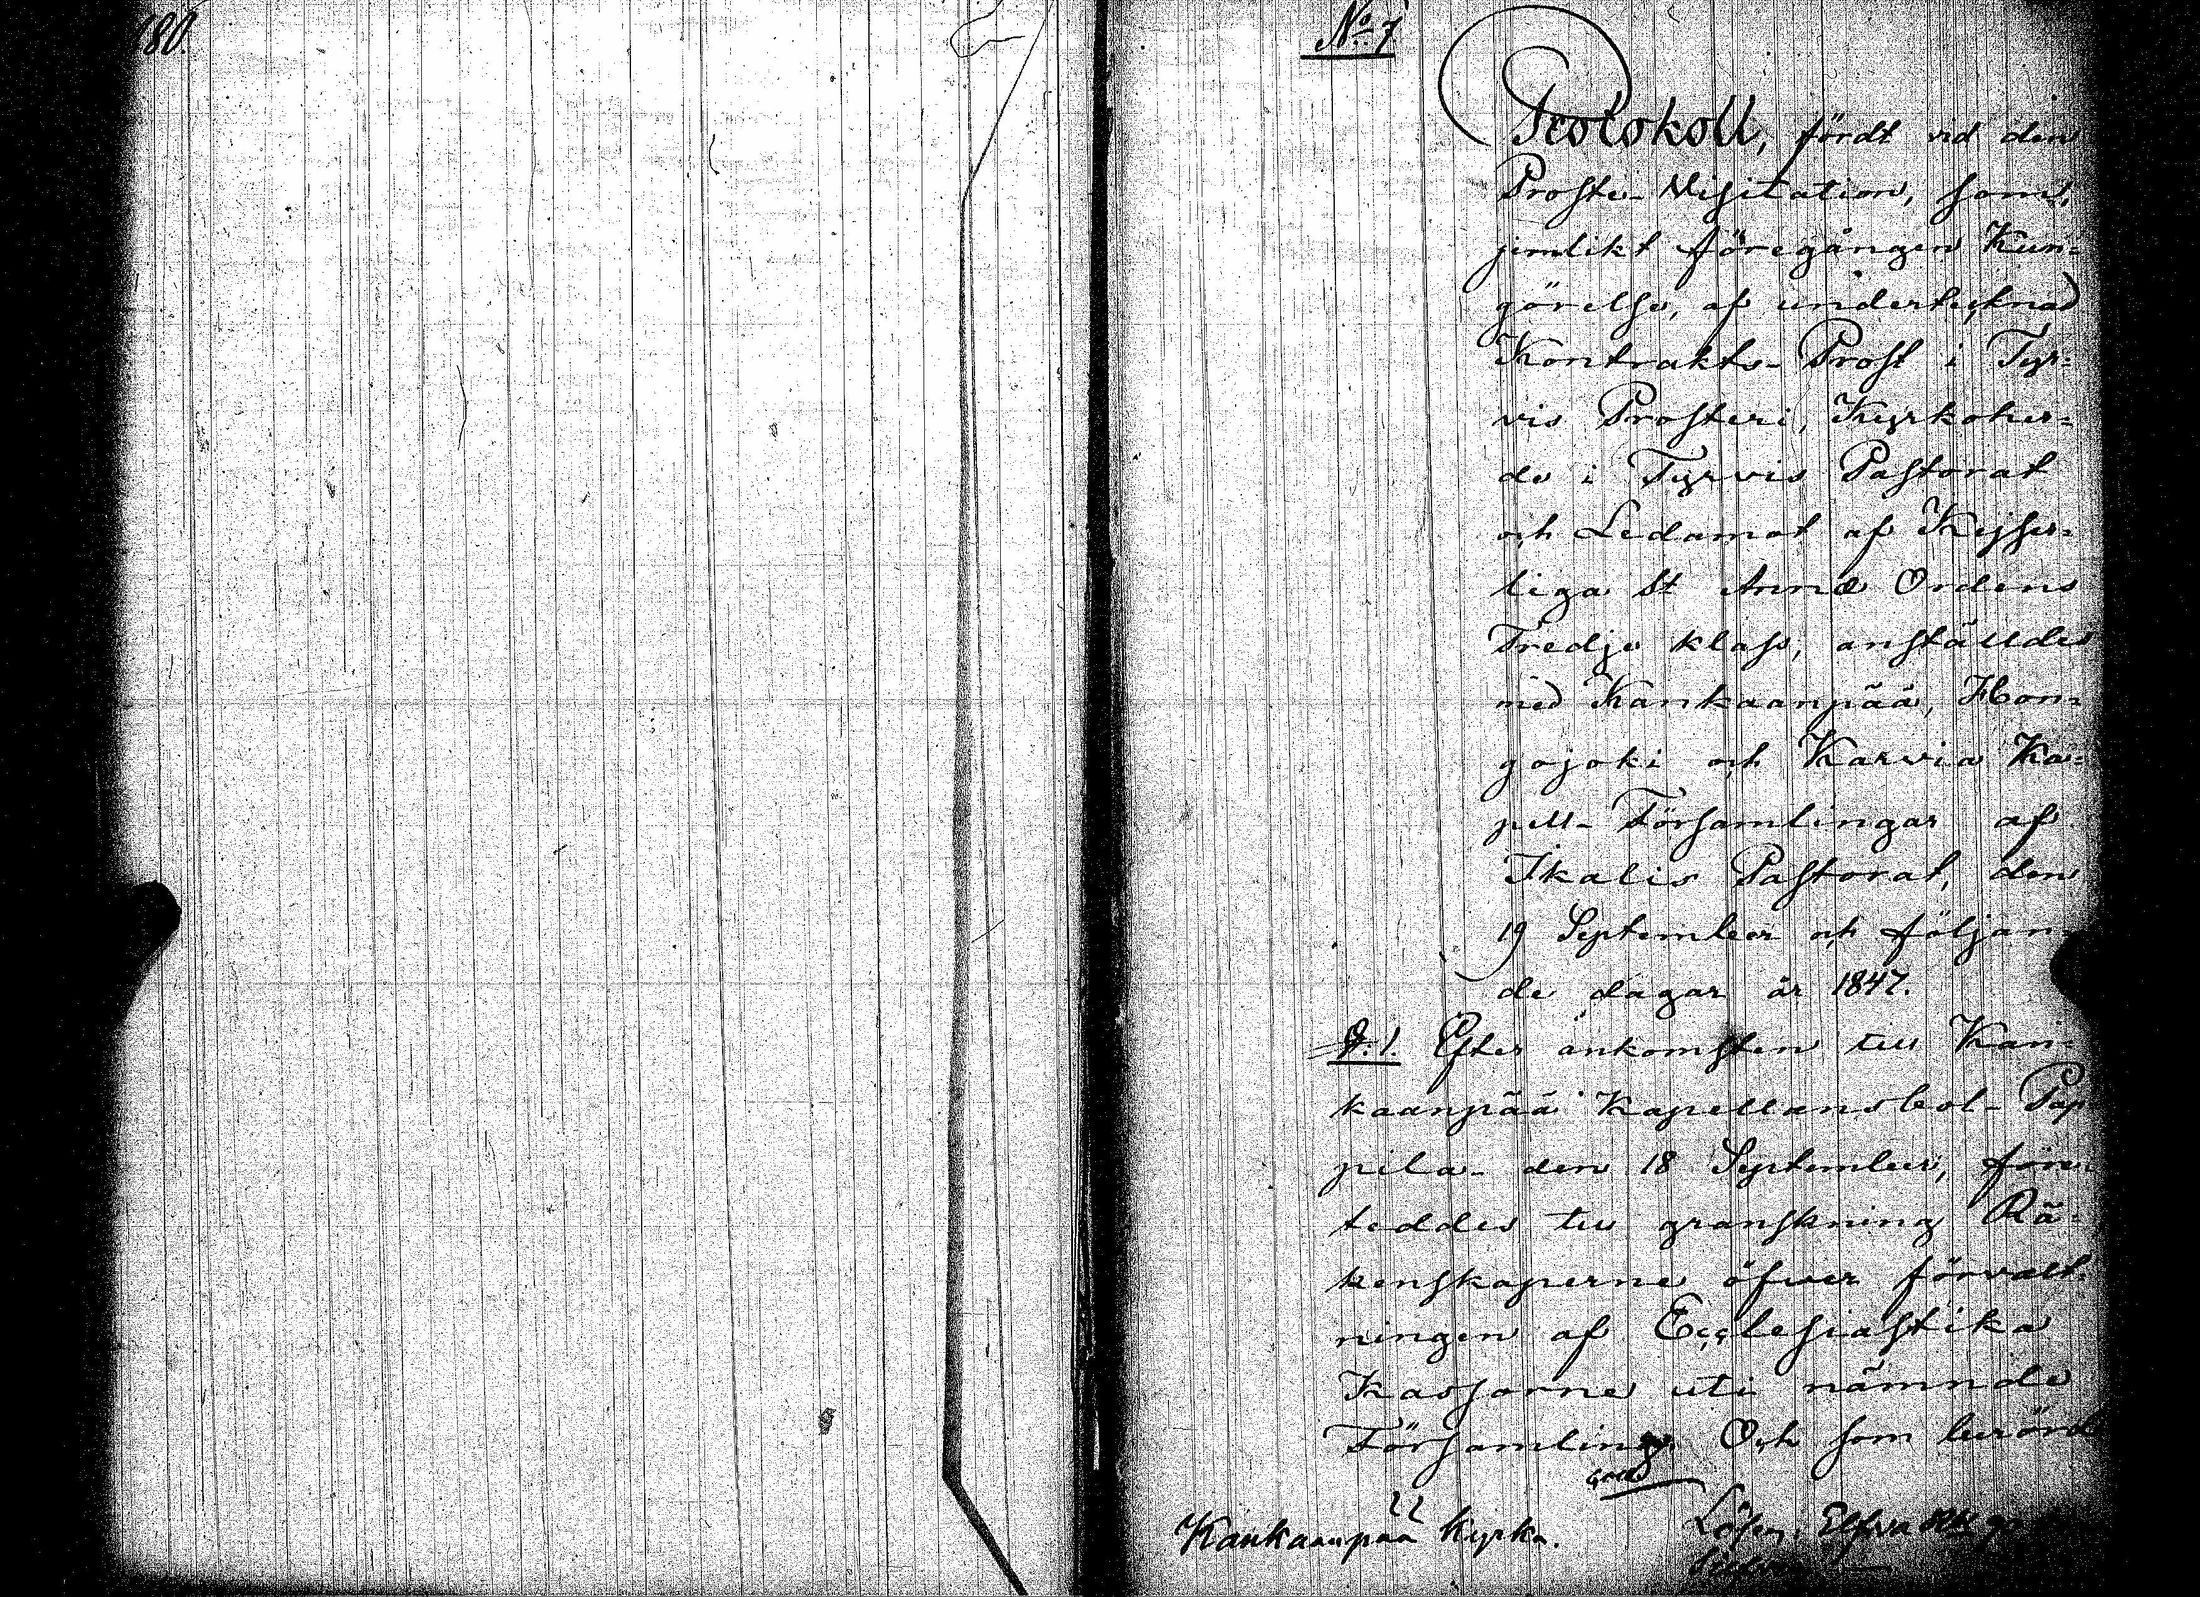 180.
No 7
Protokoll, fördt vid den
Proste-Visitation, som,
jemlikt föregången Kun=
görelse, af undertecknad
Kontrakts-Prost i Tyr=
vis Prosteri, Kyrkoher=
de i Tyrvis Pastorat
och Ledamot af Kejser=
liga St Annæ Ordens
Tredje klass, anställdes
med Kankaanpää, Hon=
gojoki och Karvia Ka=
pell-Församlingar af
Ikalis Pastorat, den
19 September och följan=
de dagar år 1847.
§. 1. Efter ankomsten till Kan=
kaanpää Kapellansbol-Pap
pila- den 18 September, före=
teddes till granskning Rä=
kenskaperne öfver förvalt=
ningen af Ecclesiastika
Kassorne uti nämnde
Församling. Och som berörd
Kankaanpää Kyrka.
Lösen: Elfva